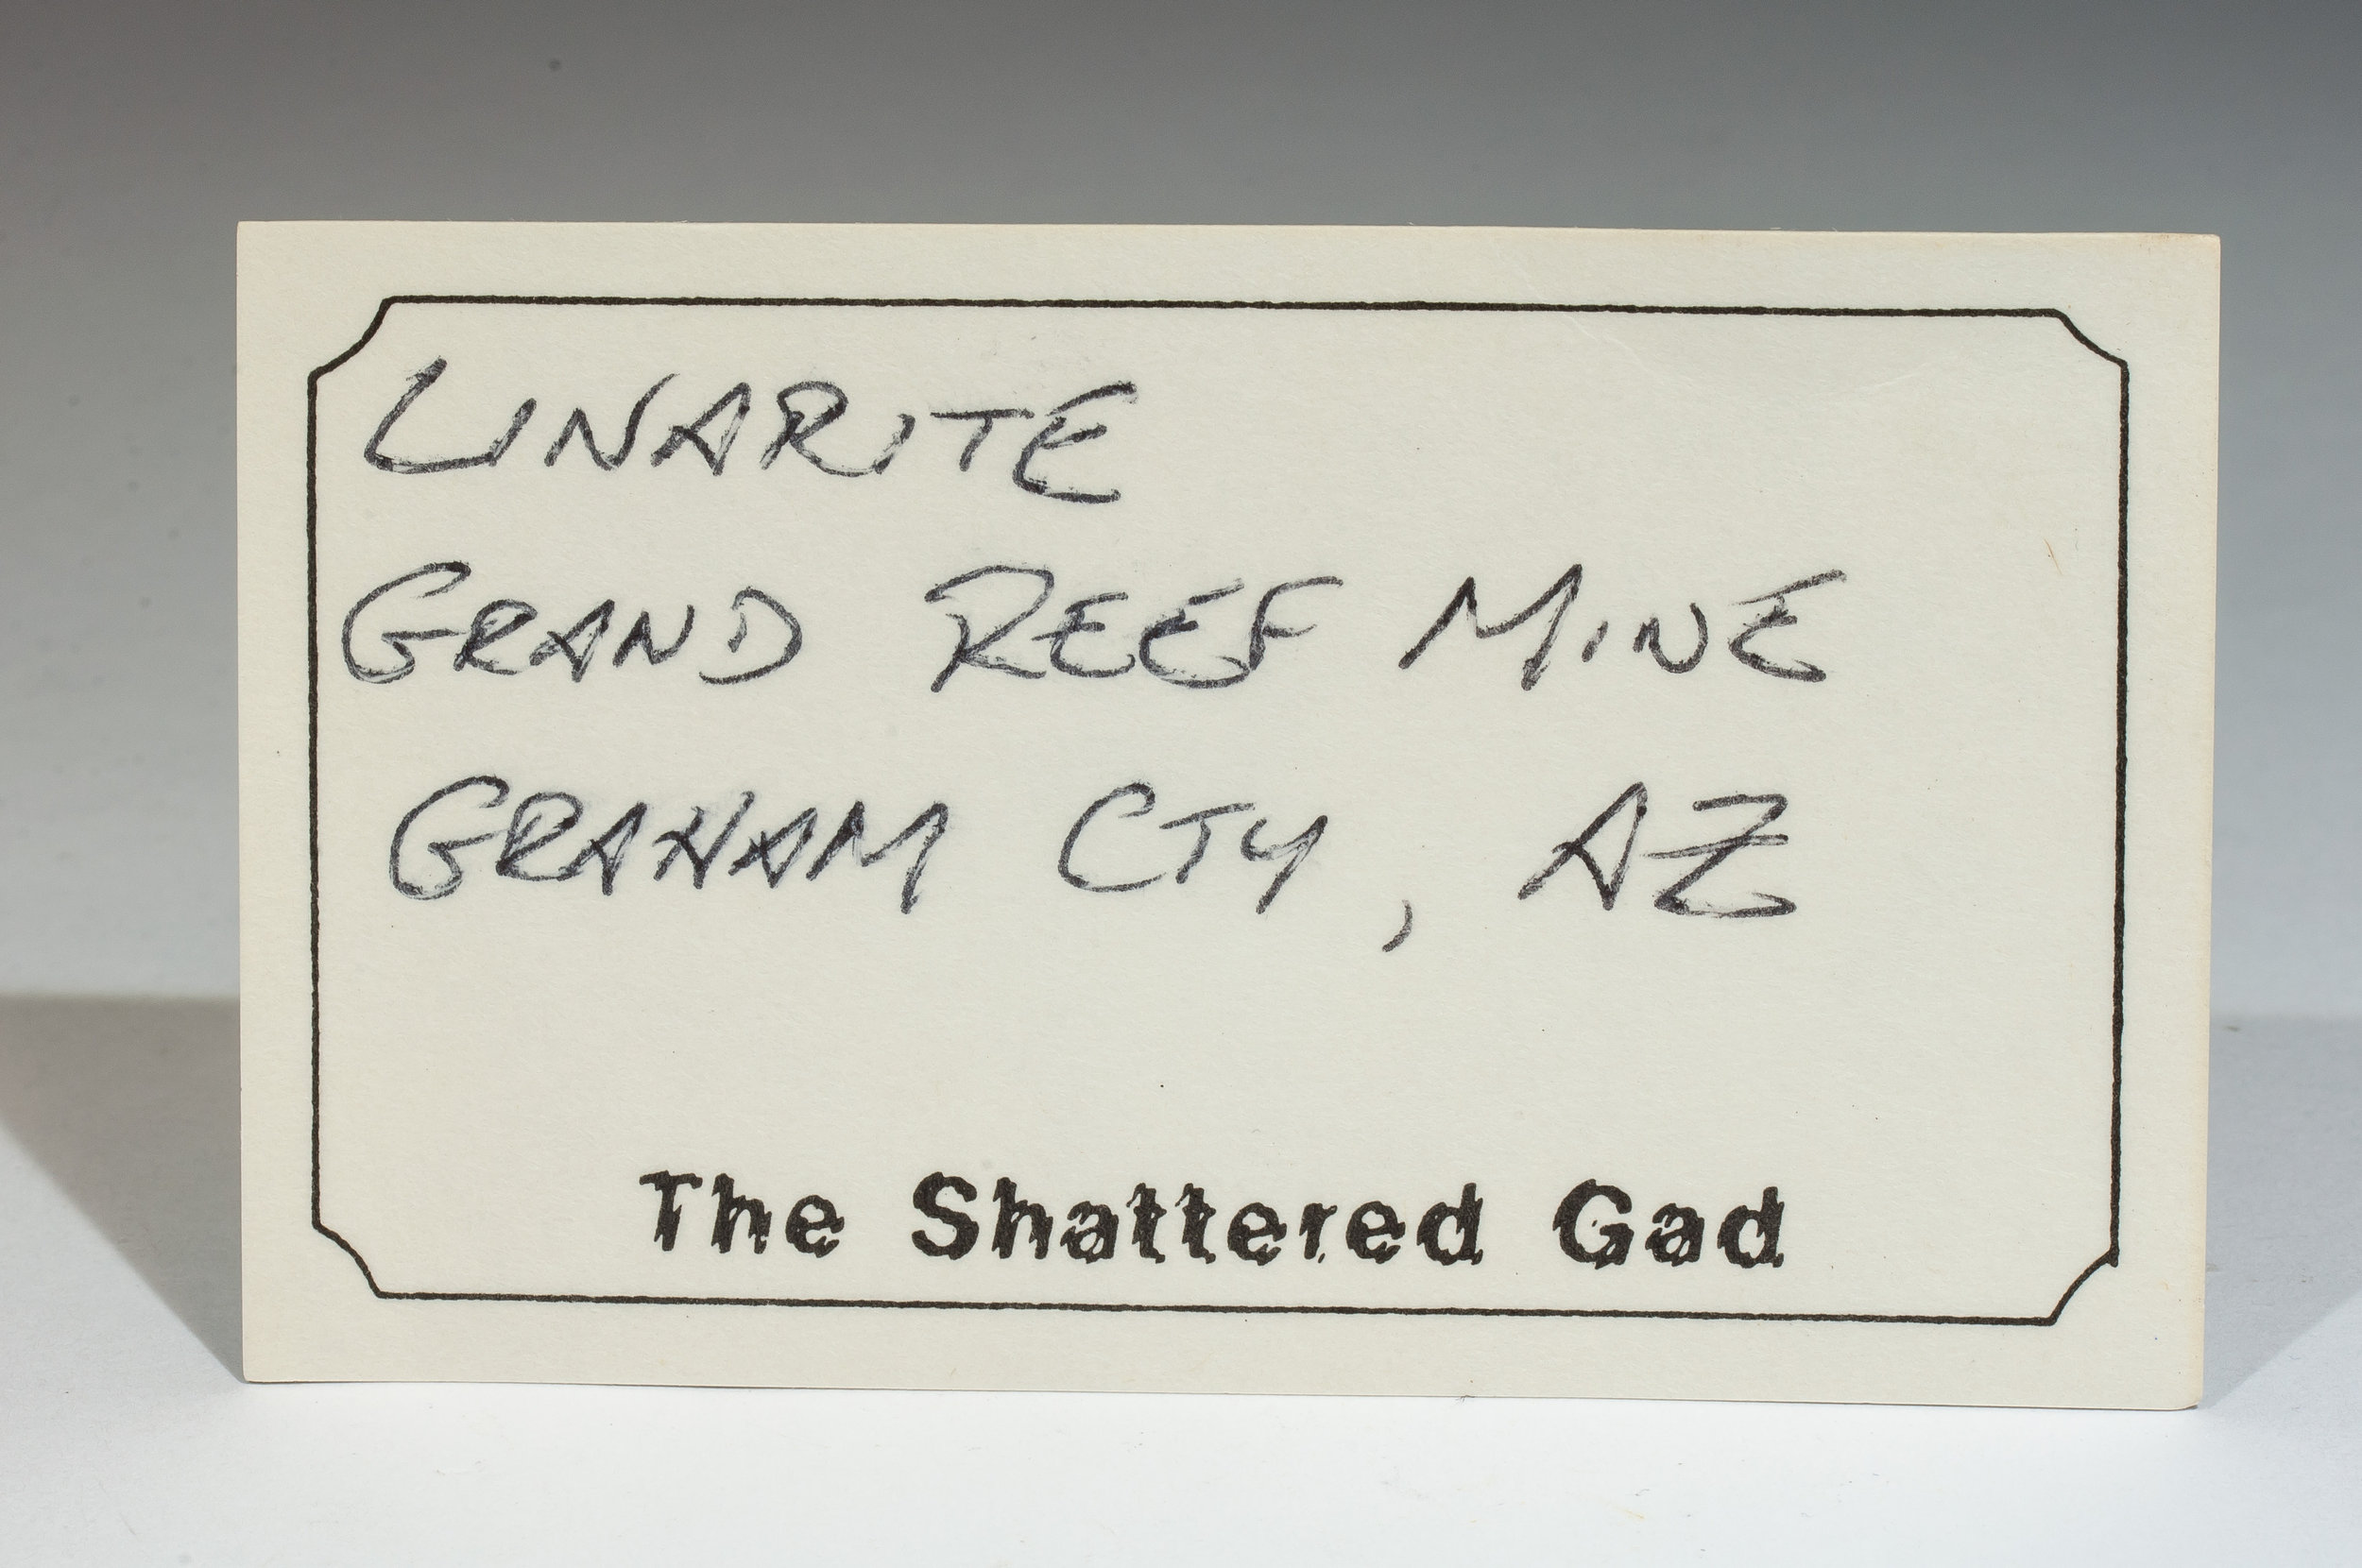 LINARITE
GRAND REEF MINE
GRAHAM CTY, AZ
The Shattered Gad